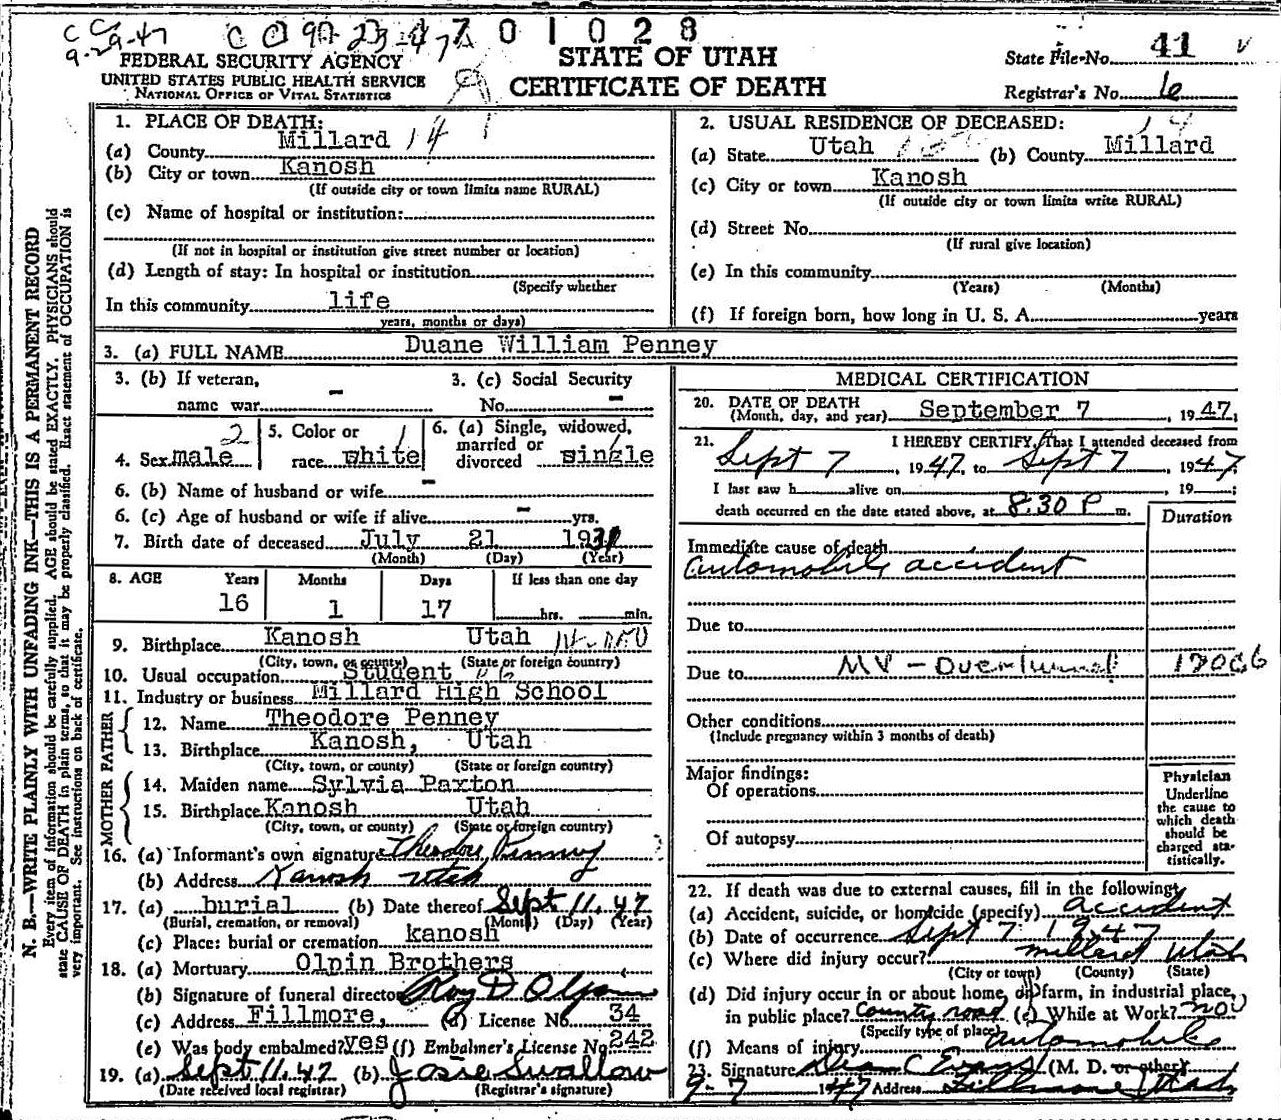 701028
9-29-47
FEDERAL SECURITY AGENCY
UNITED STATES PUBLIC HEALTH SERVICE
NATIONAL OFFICE OF VITAL STATISTICS
STATE OF UTAH
CERTIFICATE OF DEATH
State File No. 41
Registrar's No. 6
N. B.—WRITE PLAINLY WITH UNFADING INK—THIS IS A PERMANENT RECORD
Every item of information should be carefully supplied. AGE should be stated EXACTLY. PHYSICIANS should
state CAUSE OF DEATH in plain terms, so that it may be properly classified. Exact statement of OCCUPATION is
very important. See instructions on back of certificate.
1. PLACE OF DEATH:
(a) County Millard 14
(b) City or town Kanosh
(If outside city or town limits name RURAL)
(c) Name of hospital or institution:
(If not in hospital or institution give street number or location)
(d) Length of stay: In hospital or institution
(Specify whether
In this community life
years, months or days)
2. USUAL RESIDENCE OF DECEASED:
(a) State Utah (b) County Millard
(c) City or town Kanosh
(If outside city or town limits write RURAL)
(d) Street No.
(If rural give location)
(e) In this community
(Years) (Months)
(f) If foreign born, how long in U. S. A. years
3. (a) FULL NAME Duane William Penney
3. (b) If veteran,
name war -
3. (c) Social Security
No. -
4. Sex male 2
5. Color or
race white
6. (a) Single, widowed,
married or
divorced single
6. (b) Name of husband or wife -
6. (c) Age of husband or wife if alive - yrs.
7. Birth date of deceased July 21 1931
(Month) (Day) (Year)
8. AGE Years Months Days If less than one day
16 1 17 hrs. min.
9. Birthplace Kanosh Utah
(City, town, or county) (State or foreign country)
10. Usual occupation Student
11. Industry or business Millard High School
FATHER
12. Name Theodore Penney
13. Birthplace Kanosh, Utah
(City, town, or county) (State or foreign country)
MOTHER
14. Maiden name Sylvia Paxton
15. Birthplace Kanosh Utah
(City, town, or county) (State or foreign country)
16. (a) Informant's own signature Theodore Penney
(b) Address Kanosh Utah
17. (a) burial (b) Date thereof Sept 11, 47
(Burial, cremation, or removal) (Month) (Day) (Year)
(c) Place: burial or cremation kanosh
18. (a) Mortuary Olpin Brothers
(b) Signature of funeral director Roy D Olpin
(c) Address Fillmore, (d) License No. 34
(e) Was body embalmed? yes (f) Embalmer's License No. 242
19. (a) Sept 11, 47 (b) Josie Swallow
(Date received local registrar) (Registrar's signature)
MEDICAL CERTIFICATION
20. DATE OF DEATH
(Month, day, and year) September 7, 1947;
21. I HEREBY CERTIFY, That I attended deceased from
Sept 7, 1947, to Sept 7, 1947;
I last saw h alive on , 19 ;
death occurred on the date stated above, at 8:30 P m.
Duration
Immediate cause of death
automobile accident
Due to
Due to MV - Overturned
Other conditions
(Include pregnancy within 3 months of death)
Major findings:
Of operations
Of autopsy
Physician
Underline
the cause to
which death
should be
charged sta-
tistically.
22. If death was due to external causes, fill in the following:
(a) Accident, suicide, or homicide (specify) accident
(b) Date of occurrence Sept 7 1947
(c) Where did injury occur? millard Utah
(City or town) (County) (State)
(d) Did injury occur in or about home, on farm, in industrial place,
in public place? County road (e) While at Work? no
(Specify type of place)
(f) Means of injury automobile
23. Signature Dean C Evans (M. D. or other)
9-7 1947 Address Fillmore Utah